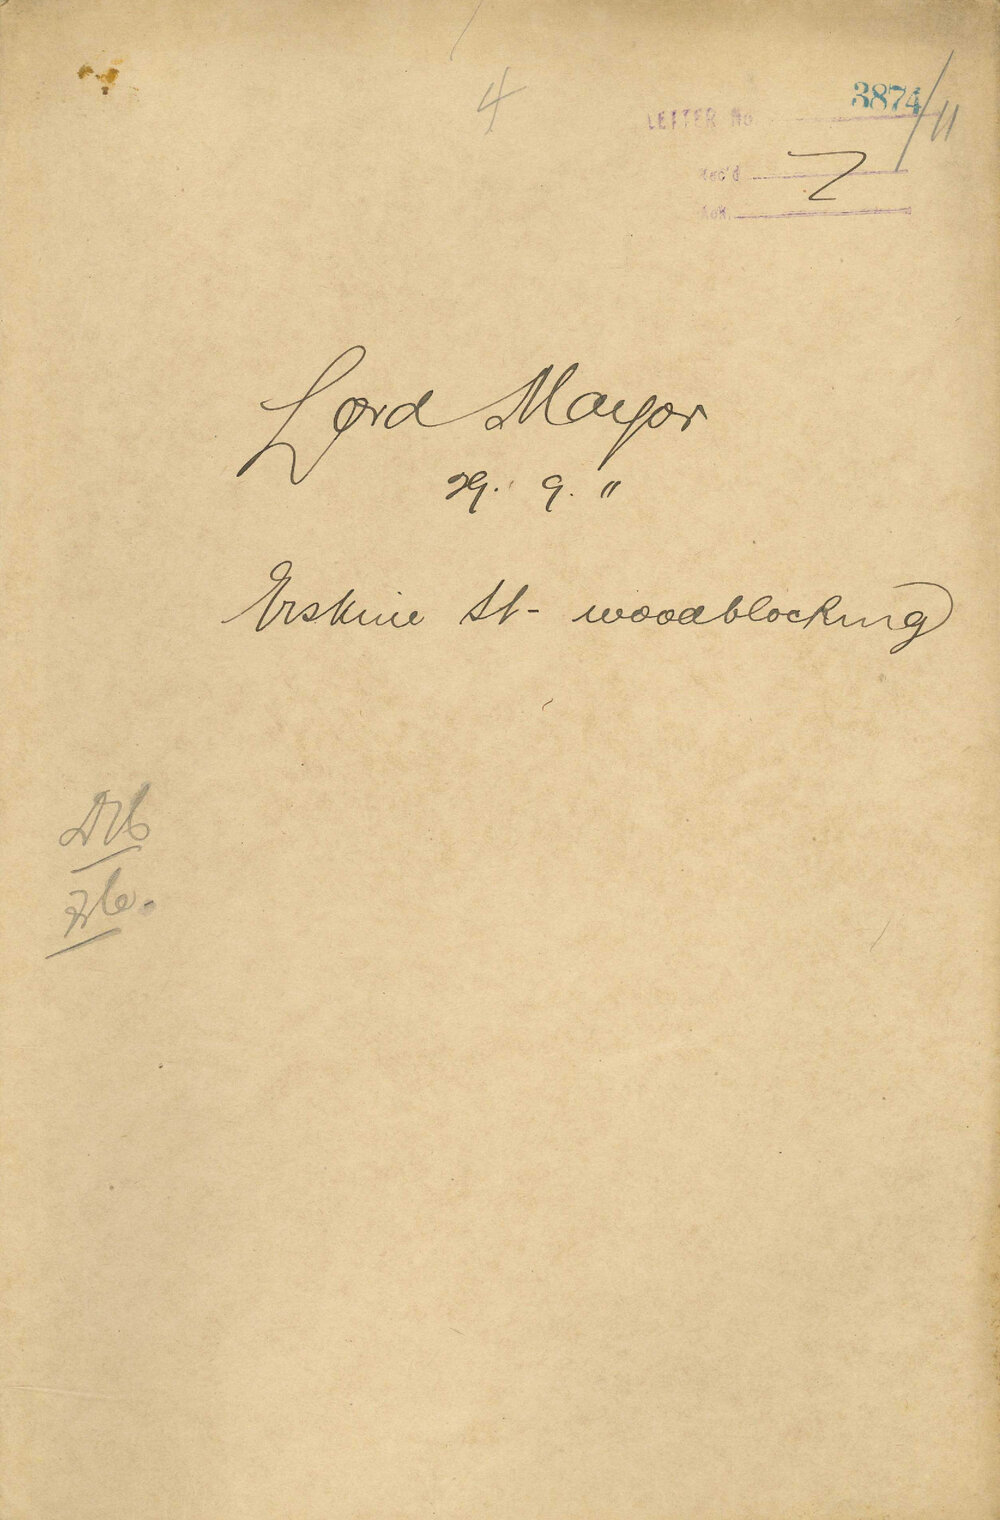 4
3874/11
LETTER No
Rec'd
Ack.
Lord Mayor
29. 9. 11
Erskine St- woodblocking